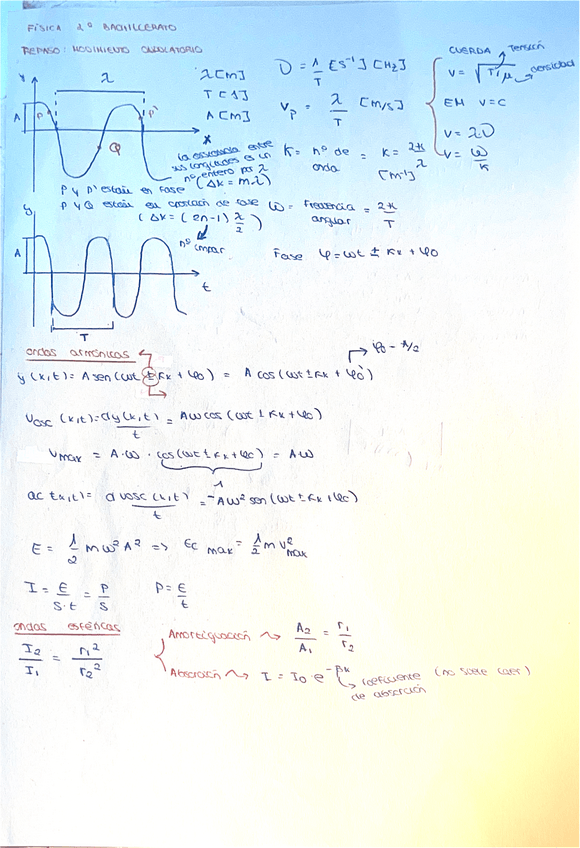 FÍSICA 2º BACHILLERATO
REPASO: MOVIMIENTO ONDULATORIO
y
λ
A
P
P'
Q
x
λ [m]
T [s]
A [m]
υ = 1/T [s⁻¹] [Hz]
Vp = λ/T [m/s]
CUERDA
Tensión
v = √T/μ
densidad
EM v=c
v = λυ
v = ω/k
la distancia entre
sus longitudes es un
nº entero por λ
(Δx = n·λ)
K = nº de onda = K = 2π/λ [m⁻¹]
P y P' están en fase
P y Q están en oposición de fase
(Δx = (2n-1) λ/2)
nº impar
ω = Frecuencia angular = 2π/T
Fase φ = ωt ± kx + φ0
y
A
t
T
ondas armónicas
φ0 - π/2
y (x,t) = A sen (ωt ± kx + φ0) = A cos (ωt ± kx + φ0')
Vosc (x,t) = dy(x,t)/t = Aω cos (ωt ± kx + φ0)
Vmax = A·ω · cos (ωt ± kx + φ0) = Aω
1
ac (x,t) = dvosc (x,t)/t = -Aω² sen (ωt ± kx + φ0)
E = 1/2 m ω² A² => Ec max = 1/2 m v²max
I = E/S·t = P/S P = E/t
ondas esféricas
I2/I1 = r1²/r2²
Amortiguación A2/A1 = r1/r2
Absorción I = I0 · e^-βx
coeficiente (no suele caer)
de absorción